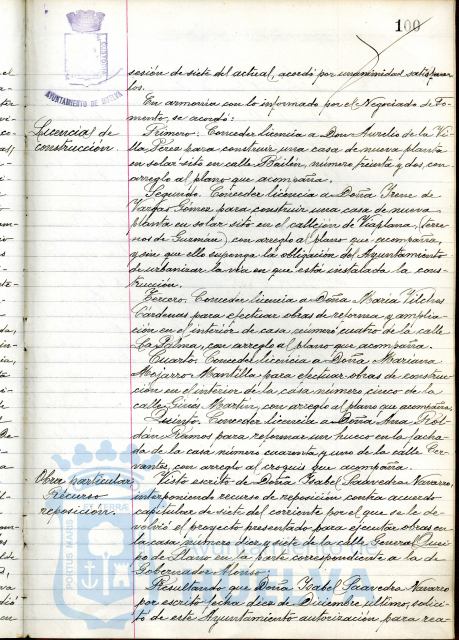 100
AYUNTAMIENTO DE HUELVA
sesión de siete del actual, acordó por unanimidad satisfacer
los.
En armonía con lo informado por el Negociado de Fo-
mento, se acordó:
Licencias de
construcción.
Primero. Conceder licencia a Don Aurelio de la Vi-
lla Pérez para construir una casa de nueva planta
en solar sito en calle Bailén, número treinta y dos, con
arreglo al plano que acompaña.
Segundo. Conceder licencia a Doña Irene de
Vargas Gómez para construir una casa de nueva
planta en solar sito en el callejón de Viaplana, (terre-
nos de Guzmán), con arreglo al plano que acompaña,
y sin que ello suponga la obligación del Ayuntamiento
de urbanizar la vía en que está instalada la cons-
trucción.
Tercero. Conceder licencia a Doña María Vilches
Cárdenas para efectuar obras de reforma y amplia-
ción en el interior de casa número cuatro de la calle
La Palma, con arreglo al plano que acompaña.
Cuarto. Conceder licencia a Doña Mariana
Mantilla para efectuar obras de construc-
ción en el interior de la casa número cinco de la
calle Ginés Martín, con arreglo al plano que acompaña.
Quinto. Conceder licencia a Doña Ana Rol-
dán Ramos para reformar un hueco en la facha-
da de la casa número cuarenta y uno de la calle Cer-
vantes, con arreglo al croquis que acompaña.
Obra particular
Recurso
reposición
Visto escrito de Doña Isabel Saavedra Navarro,
interponiendo recurso de reposición contra acuerdo
capitular de siete del corriente por el que se le de-
volvió el proyecto presentado para ejecutar obras en
la casa número diez y siete de la calle General Quei-
po de Llano en la parte correspondiente a la de
Gobernador Alonso;
Resultando que Doña Isabel Saavedra Navarro
por escrito fecha diez de Diciembre último, solici-
tó de este Ayuntamiento autorización para rea-
PORTUS MARIS